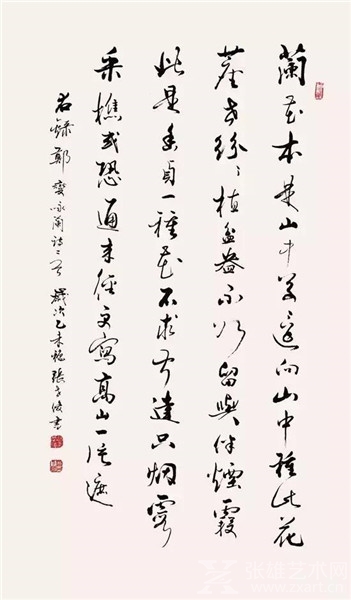 蘭花本是山中草還向山中種此花
塵世紛〻植盆盎不如留與伴煙霞
此是幽貞一種花不求聞達只烟霞
采樵或恐通來徑更寫高山一片遮
右錄鄭燮咏蘭詩二首歲次乙未秋張俊書
张雄艺术网